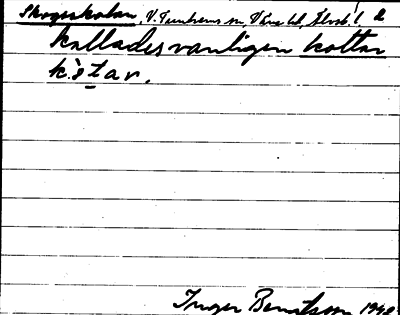 Skogsskolan, V. Tunhems sn, Väne hd,
kallades vanligen kottar
kòtar.
Inger Bengtsson 1948